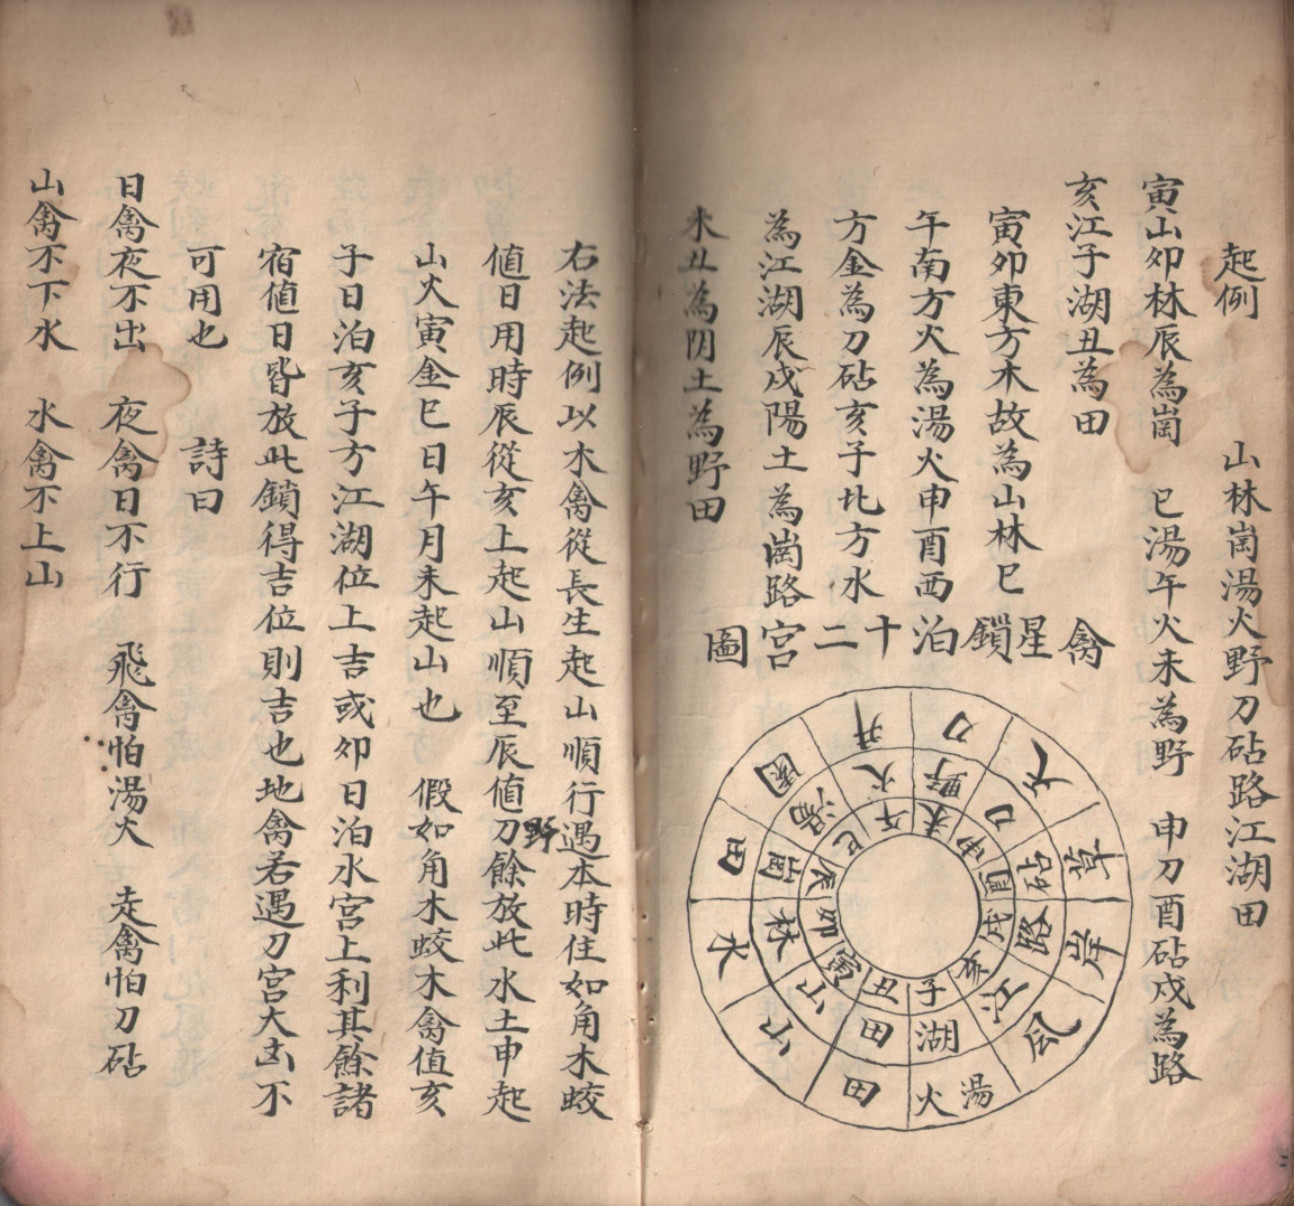 起例　山林崗湯火野刀砧路江湖田
寅山卯林辰為崗　巳湯午火未為野　申刀酉砧戌為路
亥江子湖丑為田
寅卯東方木故為山林巳
午南方火為湯火申酉西
方金為刀砧亥子北方水
為江湖辰戌陽土為崗路
未丑為阴土為野田
禽星鎖泊十二宮圖
子丑寅卯辰巳午未申酉戌亥
湖田山林崗湯火野刀砧路江
湯火田山水田園井刀火草岸風
右法起例以木禽從長生起山順行遇本時住如角木蛟
値日用時辰從亥上起山順至辰値刀野餘放此水土申起
山火寅金巳日午月未起山也　假如角木蛟木禽值亥
子日泊亥子方江湖位上吉或卯日泊水宮上利其餘諸
宿値日皆放此鎖得吉位則吉也地禽若遇刀宮大凶不
可用也　詩曰
日禽夜不出　夜禽日不行　飛禽怕湯火　走禽怕刀砧
山禽不下水　水禽不上山